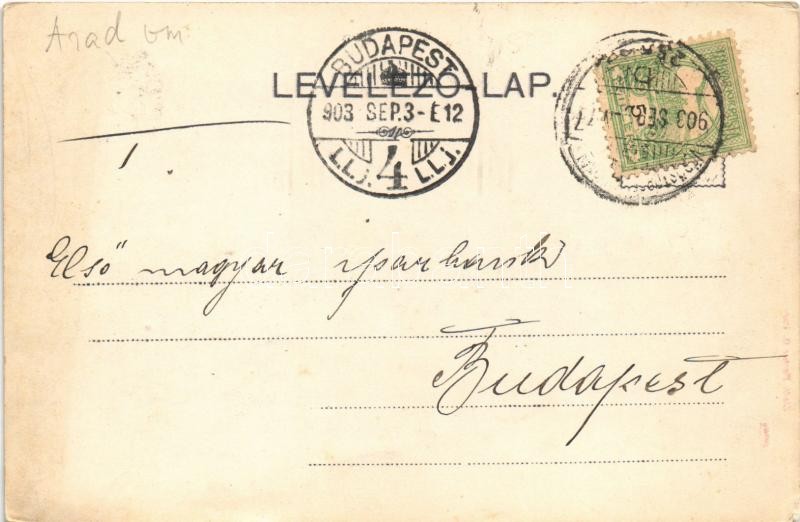 Arad vm
LEVELEZŐ-LAP.
BUDAPEST
903 SEP.3-É12
I.L.j. 4 I.L.j.
903 SEP.
1.
Első magyar iparbank
Budapest